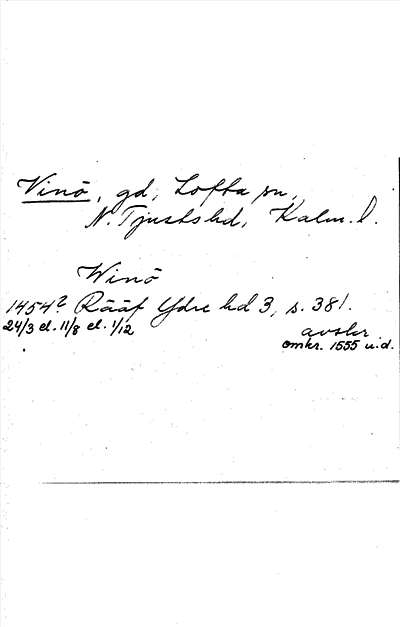 Vinö, gd, Lofta sn,
N. Tjusts hd, Kalm. l.
Winö
1454? Rääf Ydre hd 3, s. 381.
24/3 el. 11/8 el. 1/12
avskr.
omkr. 1555 u.d.